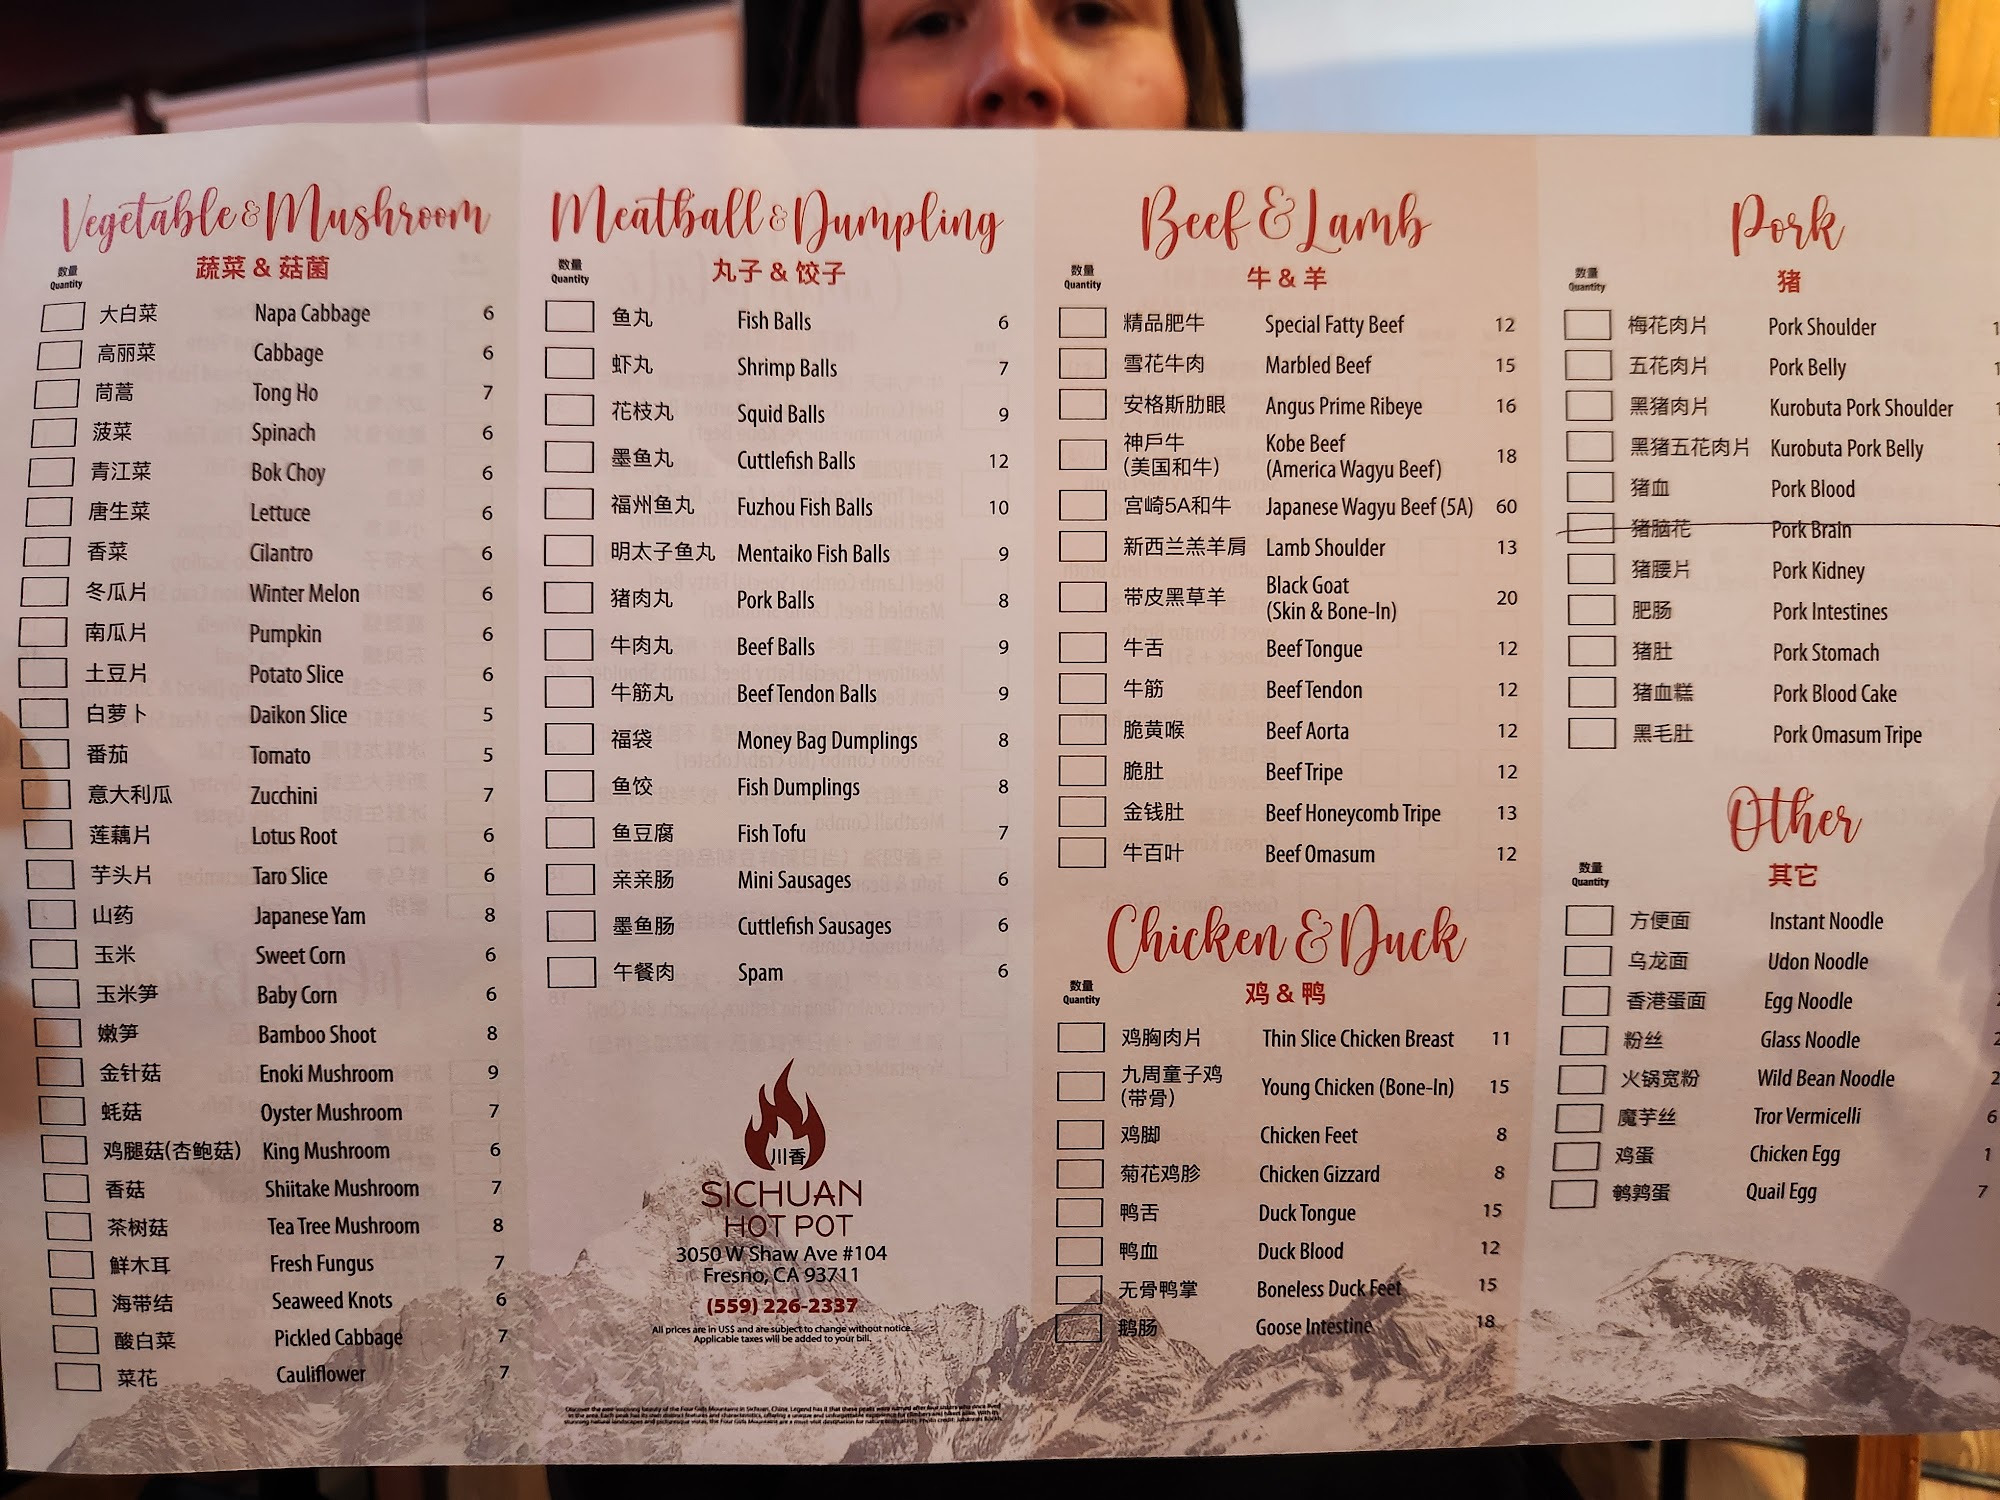 Vegetable & Mushroom
蔬菜 & 菇菌
数量
Quantity
大白菜 Napa Cabbage 6
高丽菜 Cabbage 6
茼蒿 Tong Ho 7
菠菜 Spinach 6
青江菜 Bok Choy 6
唐生菜 Lettuce 6
香菜 Cilantro 6
冬瓜片 Winter Melon 6
南瓜片 Pumpkin 6
土豆片 Potato Slice 6
白萝卜 Daikon Slice 5
番茄 Tomato 5
意大利瓜 Zucchini 7
莲藕片 Lotus Root 6
芋头片 Taro Slice 6
山药 Japanese Yam 8
玉米 Sweet Corn 6
玉米笋 Baby Corn 6
嫩笋 Bamboo Shoot 8
金针菇 Enoki Mushroom 9
蚝菇 Oyster Mushroom 7
鸡腿菇(杏鲍菇) King Mushroom 6
香菇 Shiitake Mushroom 7
茶树菇 Tea Tree Mushroom 8
鲜木耳 Fresh Fungus 7
海带结 Seaweed Knots 6
酸白菜 Pickled Cabbage 7
菜花 Cauliflower 7
Meatball & Dumpling
丸子 & 饺子
数量
Quantity
鱼丸 Fish Balls 6
虾丸 Shrimp Balls 7
花枝丸 Squid Balls 9
墨鱼丸 Cuttlefish Balls 12
福州鱼丸 Fuzhou Fish Balls 10
明太子鱼丸 Mentaiko Fish Balls 9
猪肉丸 Pork Balls 8
牛肉丸 Beef Balls 9
牛筋丸 Beef Tendon Balls 9
福袋 Money Bag Dumplings 8
鱼饺 Fish Dumplings 8
鱼豆腐 Fish Tofu 7
亲亲肠 Mini Sausages 6
墨鱼肠 Cuttlefish Sausages 6
午餐肉 Spam 6
川香
SICHUAN
HOT POT
3050 W Shaw Ave #104
Fresno, CA 93711
(559) 226-2337
All prices are in US$ and are subject to change without notice.
Applicable taxes will be added to your bill.
Beef & Lamb
牛 & 羊
数量
Quantity
精品肥牛 Special Fatty Beef 12
雪花牛肉 Marbled Beef 15
安格斯肋眼 Angus Prime Ribeye 16
神戶牛 Kobe Beef
(美国和牛) (America Wagyu Beef) 18
宫崎5A和牛 Japanese Wagyu Beef (5A) 60
新西兰羔羊肩 Lamb Shoulder 13
带皮黑草羊 Black Goat
(Skin & Bone-In) 20
牛舌 Beef Tongue 12
牛筋 Beef Tendon 12
脆黄喉 Beef Aorta 12
脆肚 Beef Tripe 12
金钱肚 Beef Honeycomb Tripe 13
牛百叶 Beef Omasum 12
Chicken & Duck
鸡 & 鸭
数量
Quantity
鸡胸肉片 Thin Slice Chicken Breast 11
九周童子鸡
(带骨) Young Chicken (Bone-In) 15
鸡脚 Chicken Feet 8
菊花鸡胗 Chicken Gizzard 8
鸭舌 Duck Tongue 15
鸭血 Duck Blood 12
无骨鸭掌 Boneless Duck Feet 15
鹅肠 Goose Intestine 18
Pork
猪
数量
Quantity
梅花肉片 Pork Shoulder
五花肉片 Pork Belly
黑猪肉片 Kurobuta Pork Shoulder
黑猪五花肉片 Kurobuta Pork Belly
猪血 Pork Blood
猪脑花 Pork Brain
猪腰片 Pork Kidney
肥肠 Pork Intestines
猪肚 Pork Stomach
猪血糕 Pork Blood Cake
黑毛肚 Pork Omasum Tripe
Other
其它
数量
Quantity
方便面 Instant Noodle
乌龙面 Udon Noodle
香港蛋面 Egg Noodle
粉丝 Glass Noodle 2
火锅宽粉 Wild Bean Noodle 2
魔芋丝 Tror Vermicelli 6
鸡蛋 Chicken Egg 1
鹌鹑蛋 Quail Egg 7